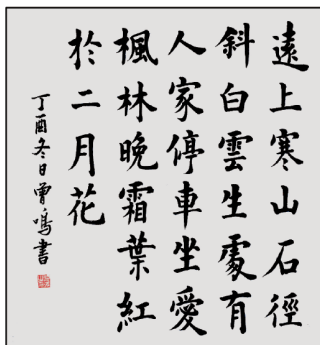 遠上寒山石徑
斜白雲生處有
人家停車坐愛
楓林晚霜葉紅
於二月花
丁酉冬日曾鳴書